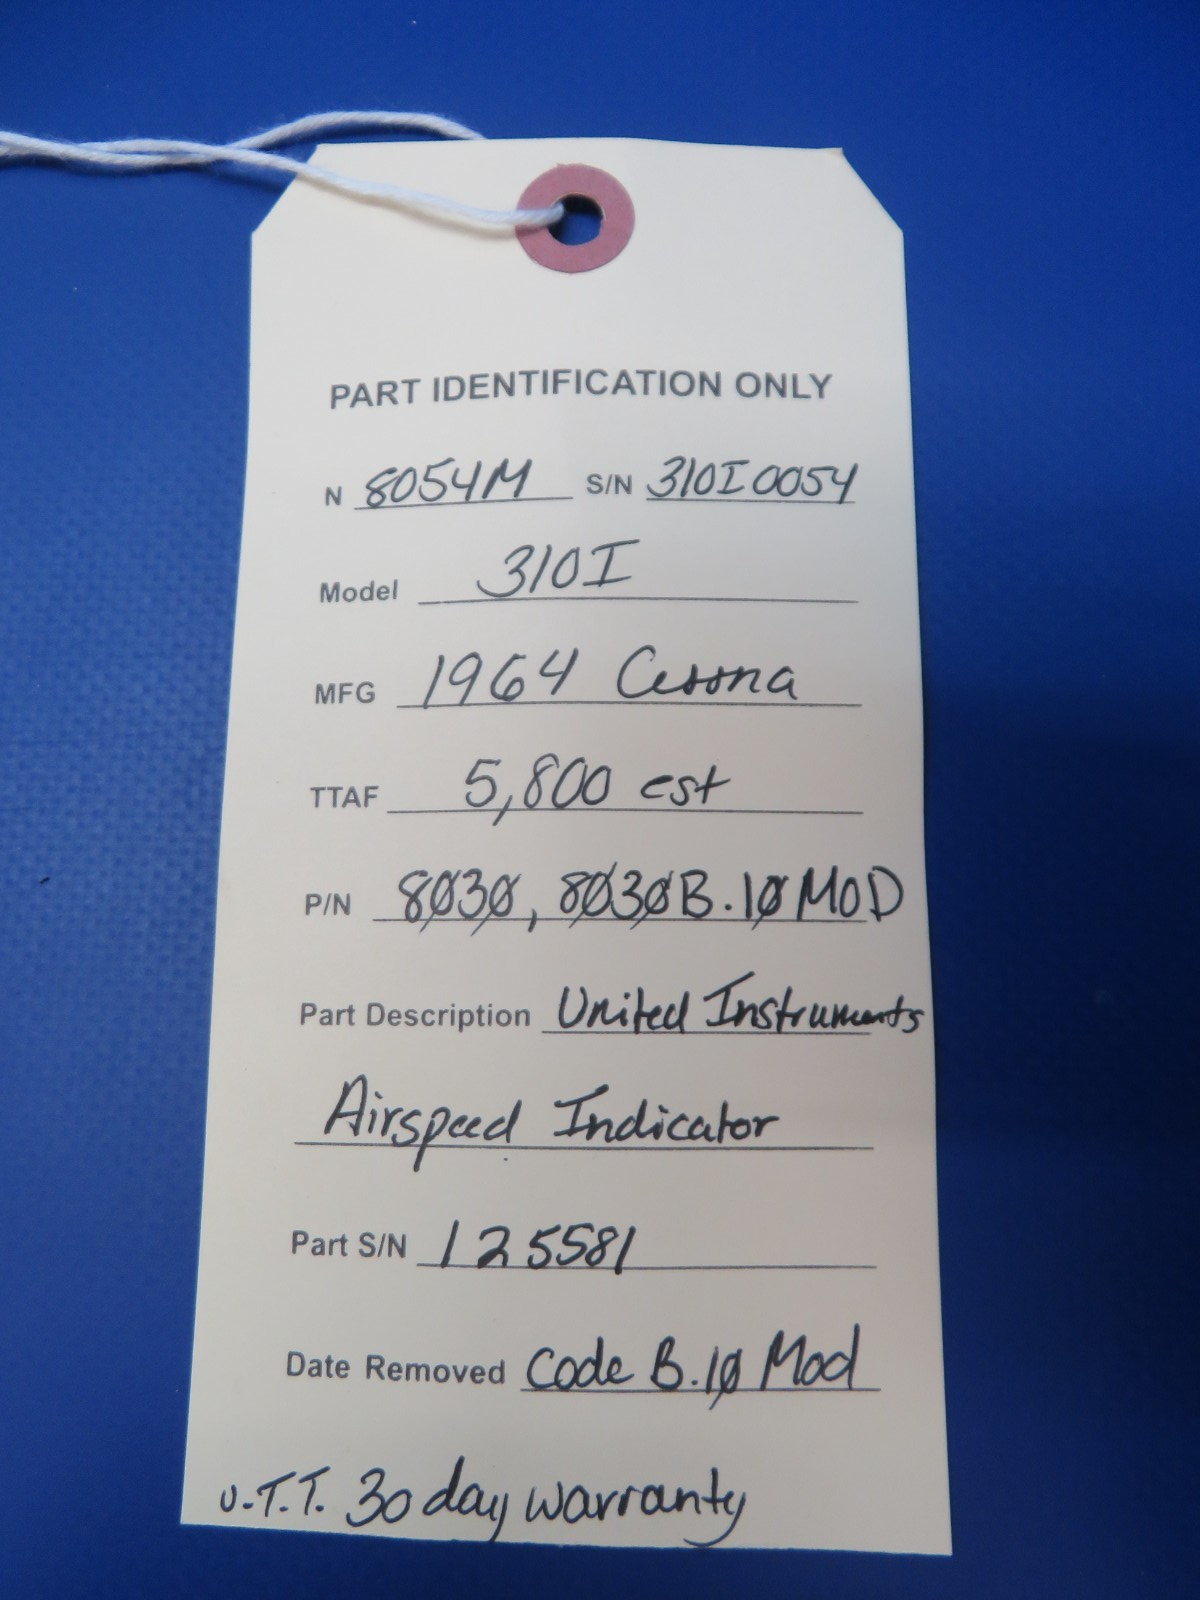 PART IDENTIFICATION ONLY
N 8054M S/N 310I0054
Model 310I
MFG 1964 Cessna
TTAF 5,800 est
P/N 8Ø3Ø, 8Ø3ØB.1Ø MOD
Part Description United Instruments
Airspeed Indicator
Part S/N 125581
Date Removed Code B.1Ø Mod
U.T.T. 30 day warranty